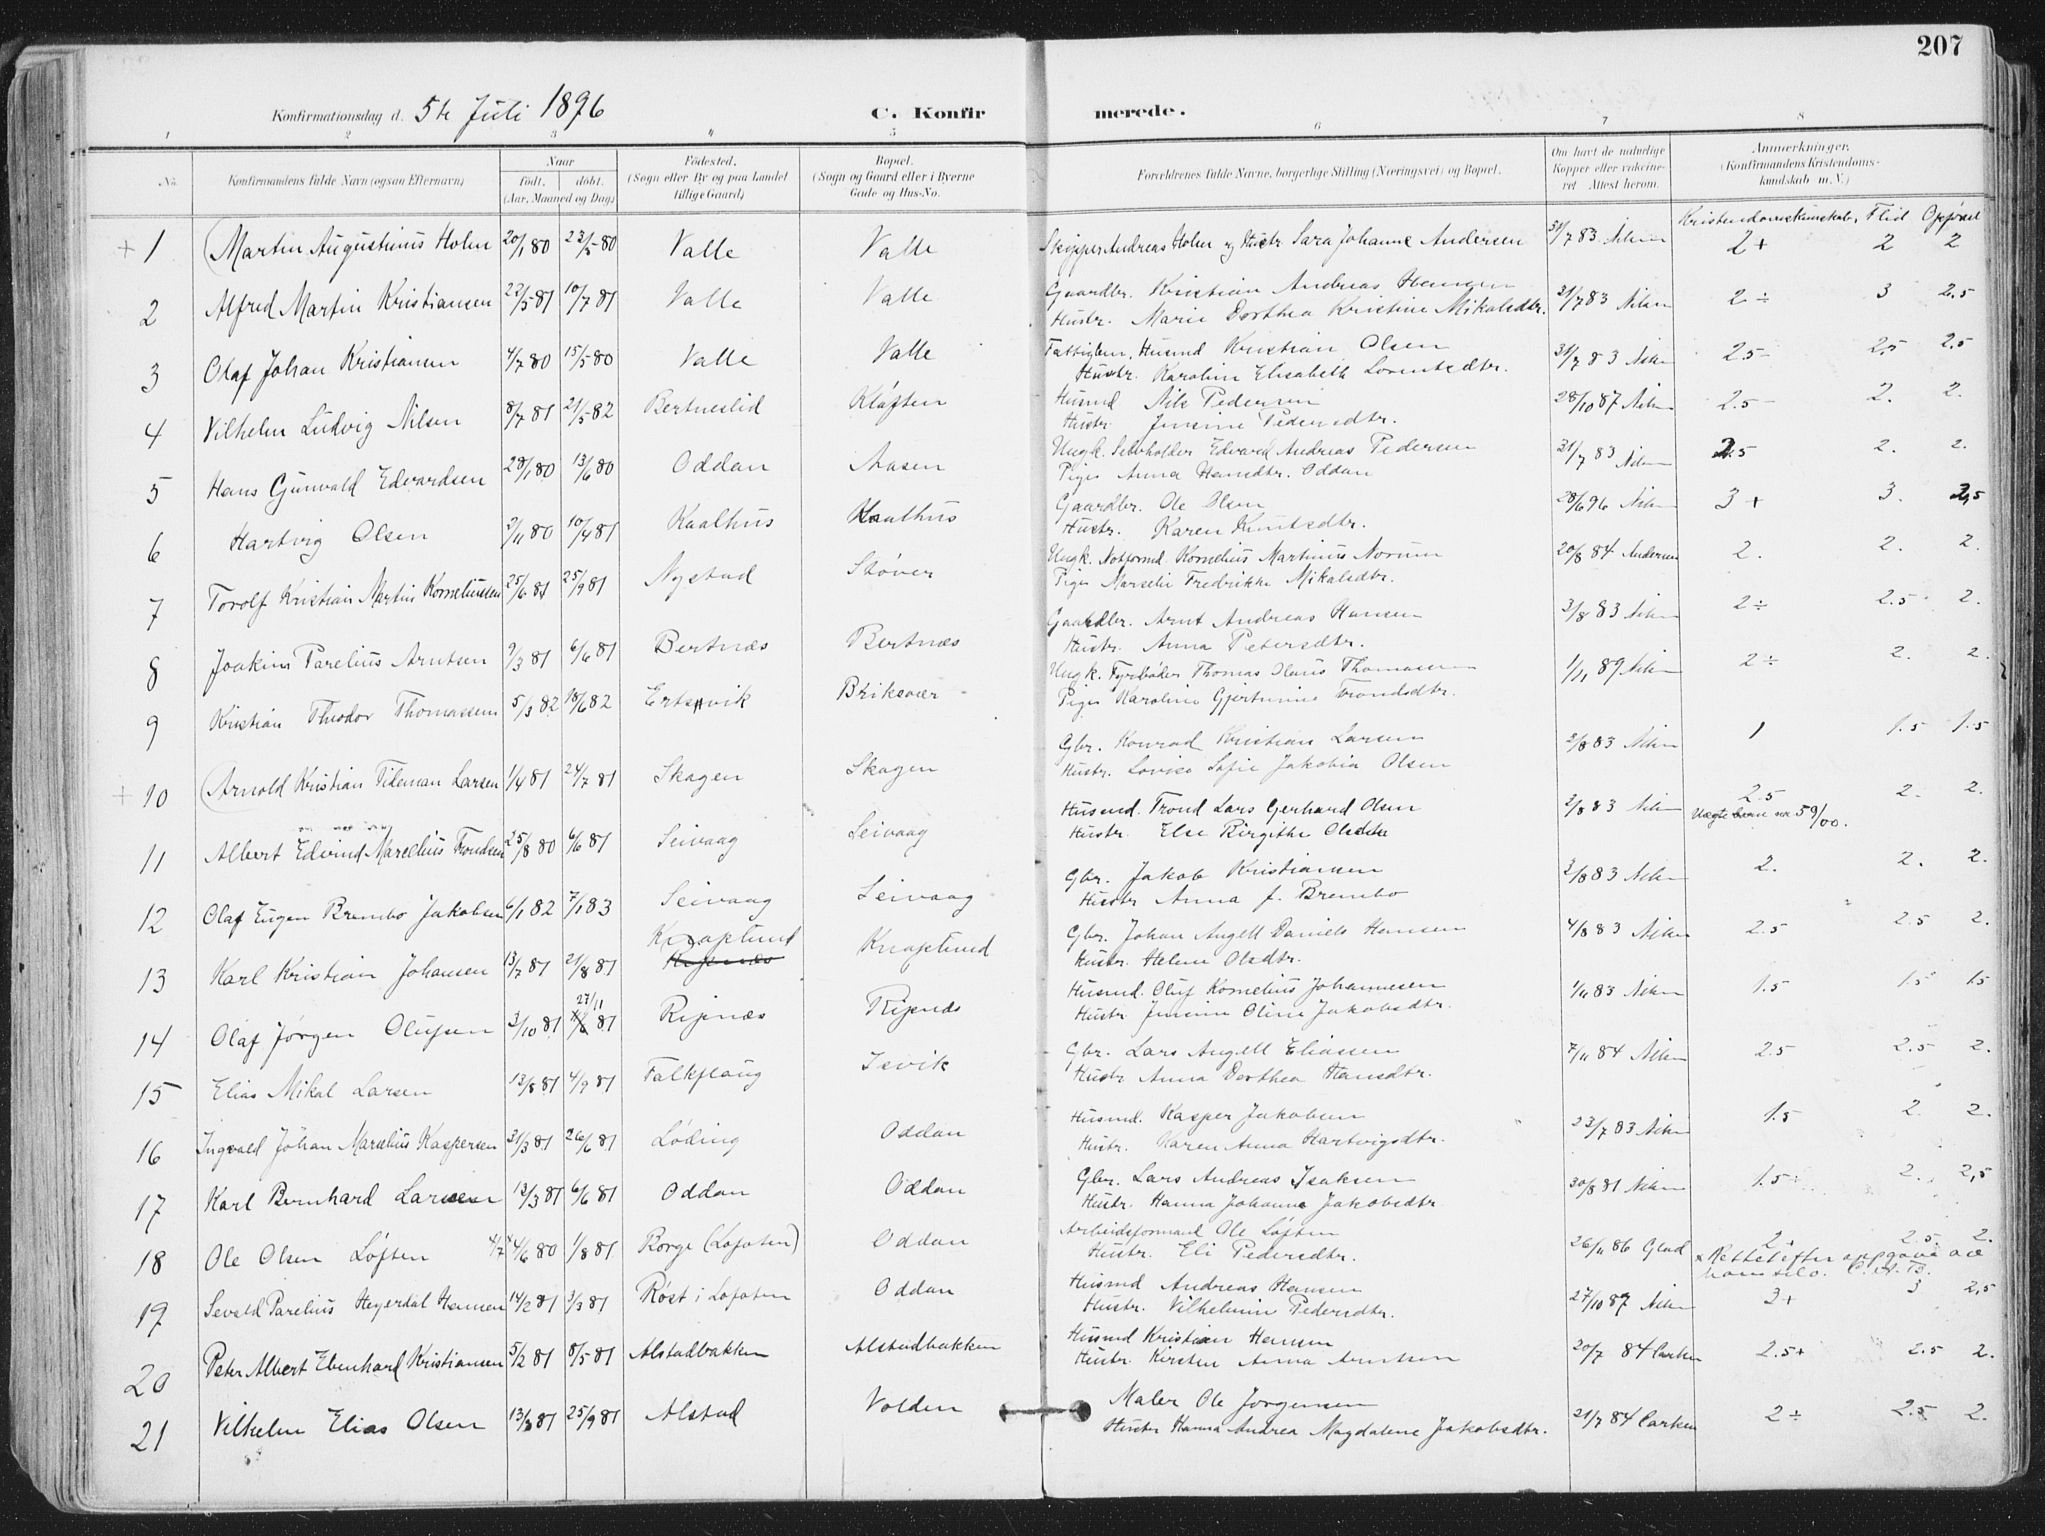 207
Konfirmationsdag d. 5te Juli 1896
C. Konfirmerede.
1 2 3 4 5 6 7 8
No.
Konfirmandens fulde Navn (ogsaa Efternavn)
Naar
født, døbt.
(Aar, Maaned og Dag)
Fødested.
(Sogn eller By og paa Landet
tillige Gaard)
Bopæl.
(Sogn og Gaard eller i Byerne
Gade og Hus-No.
Forældrenes fulde Navne, borgerlige Stilling (Næringsvei) og Bopæl.
Om havt de naturlige
Kopper eller vakcine-
ret Attest herom.
Anmærkninger.
(Konfirmandens Kristendoms-
kundskab m. V.)
Kristendomskundskab, Flid Opførsel
+ 1 Martin Augustinus Holm 20/1 80 23/5 80 Valle Valle Skipper Andreas Holm og Hustr Sara Johanne Andersen 31/7 83 Nilsen 2+ 2 2
2 Alfred Martin Kristiansen 22/5 81 10/7 81 Valle Valle Gaardbr. Kristian Andreas Hansen
Hustr. Marie Dorthea Kristine Mikalsdtr. 31/7 83 Nilsen 2÷ 3 2,5
3 Olaf Johan Kristiansen 4/7 80 15/5 80 Valle Valle Fattiglem, Husmd Kristian Olsen
Hustr. Karoline Elisabeth Lorentsdtr. 31/7 83 Nilsen 2.5- 2,5 2,5
4 Vilhelm Ludvig Nilsen 8/7 81 21/5 82 Bertneslid Kløften Husmd Nils Pedersen
Hustr. Jensine Pedersdtr. 28/10 87 Nilsen 2.5- 2. 2.
5 Hans Gunvald Edvardsen 28/1 80 13/6 80 Oddan Aasen Ungk. Selvholder Edvard Andreas Pedersen
Pige Anna Hansdtr. Oddan 31/7 83 Nilsen 2.5 2. 2.
6 Hartvig Olsen 2/11 80 10/4 81 Kaalhus Kaalhus Gaardbr. Ole Olsen
Hustr. Karen Knutsdtr. 28/6 96 Nilsen 3+ 3. 2,5
7 Torolf Kristian Martin Korneliussen 25/6 81 25/9 81 Nystad Støver Ungk. Notformd. Kornelius Martinus Norum
Pige Marselie Fredrikke Mikalsdtr. 20/8 84 Andersen 2. 2. 2.
8 Joakim Parelius Arntsen 9/3 81 6/6 81 Bertnæs Bertnæs Gaardbr. Arnt Andreas Hansen
Hustr. Anna Petersdtr. 3/8 83 Nilsen 2÷ 2.5 2.
9 Kristian Theodor Thomassen 5/3 82 18/6 82 Ertsvik Briksvær Ungk. Fyrbøder Thomas Olaus Thomassen
Pige Karoline Gjertrunine Trondsdtr. 1/11 89 Nilsen 2÷ 2. 2.
+ 10 Arnold Kristian Tileman Larsen 1/4 81 24/7 81 Skagen Skagen Gbr. Konrad Kristian Larsen
Hustr. Lovise Sofie Jakobia Olsen 2/8 83 Nilsen 1 1.5 1.5
11 Albert Edvind Marcelius Trondsen 25/8 80 6/6 81 Seivaag Seivaag Husmd. Trond Lars Gerhard Olsen
Hustr. Else Birgithe Olsdtr 2/8 83 Nilsen 2.5 2. 2.
12 Olaf Eugen Brembo Jakobsen 6/1 82 7/1 83 Seivaag Seivaag Gbr. Jakob Kristiansen
Hustr Anna f. Brembo 2/8 83 Nilsen 2. 2. 2.
13 Karl Kristian Johansen 13/7 81 21/8 81 Knaplund Knaplund Gbr. Johan Angell Daniels Hansen
Hustr. Helene Olsdtr. 4/8 83 Nilsen 2.5 2.5 2.
14 Olaf Jørgen Olufsen 3/10 81 27/11 81 Ripnæs Ripnæs Husmd. Oluf Kornelius Johannesen
Hustr Jensine Oline Jakobsdtr. 1/11 83 Nilsen 1.5 1.5 1.5
15 Elias Mikal Larsen 13/8 81 4/9 81 Falkflaug Isvik Gbr. Lars Angell Eliassen
Hustr Anna Dorthea Hansdtr. 7/11 84 Nilsen 2.5 2.5 2.
16 Ingvald Johan Marselius Kaspersen 31/3 81 26/6 81 Løding Oddan Husmd. Kasper Jakobsen
Hustr. Karen Anna Hartvigsdtr. 23/7 83 Nilsen 1.5 2. 2.
17 Karl Bernhard Larsen 13/3 81 6/6 81 Oddan Oddan Gbr. Lars Andreas Isaksen
Hustr. Hanna Johanne Jakobsdtr. 30/8 81 Nilsen 1.5÷ 2. 2,5
18 Ole Olsen Løften 4/7 4/6 80 1/8 81 Borge (Lofoten) Oddan Arbeidsformand Ole Løften
Hustr. Eli Pedersdtr. 26/11 86 Glad 2+ 2.5. 2.
x Rettet efter opgave
19 Sevald Parelius Heyerdal Hansen 14/2 81 3/3 81 Røst i Lofoten Oddan Husmd Andreas Hansen
Hustr. Vilhelmine Pedersdtr. 27/10 87 Nilsen 3+ 3 2,5
20 Peter Albert Ebenhard Kristiansen 5/2 81 8/5 81 Alstadbakken Alstadbakken Husmd Kristian Hansen
Hustr. Kirsten Anna Arntsen 20/7 84 Carken 2.5+ 2.5 2.
21 Vilhelm Elias Olsen 13/8 81 25/9 81 Alstad Volden Maler Ole Jørgensen
Hustr Hanna Andrea Magdalene Jakobsdtr. 21/7 84 Carken 2÷ 2.5 2.